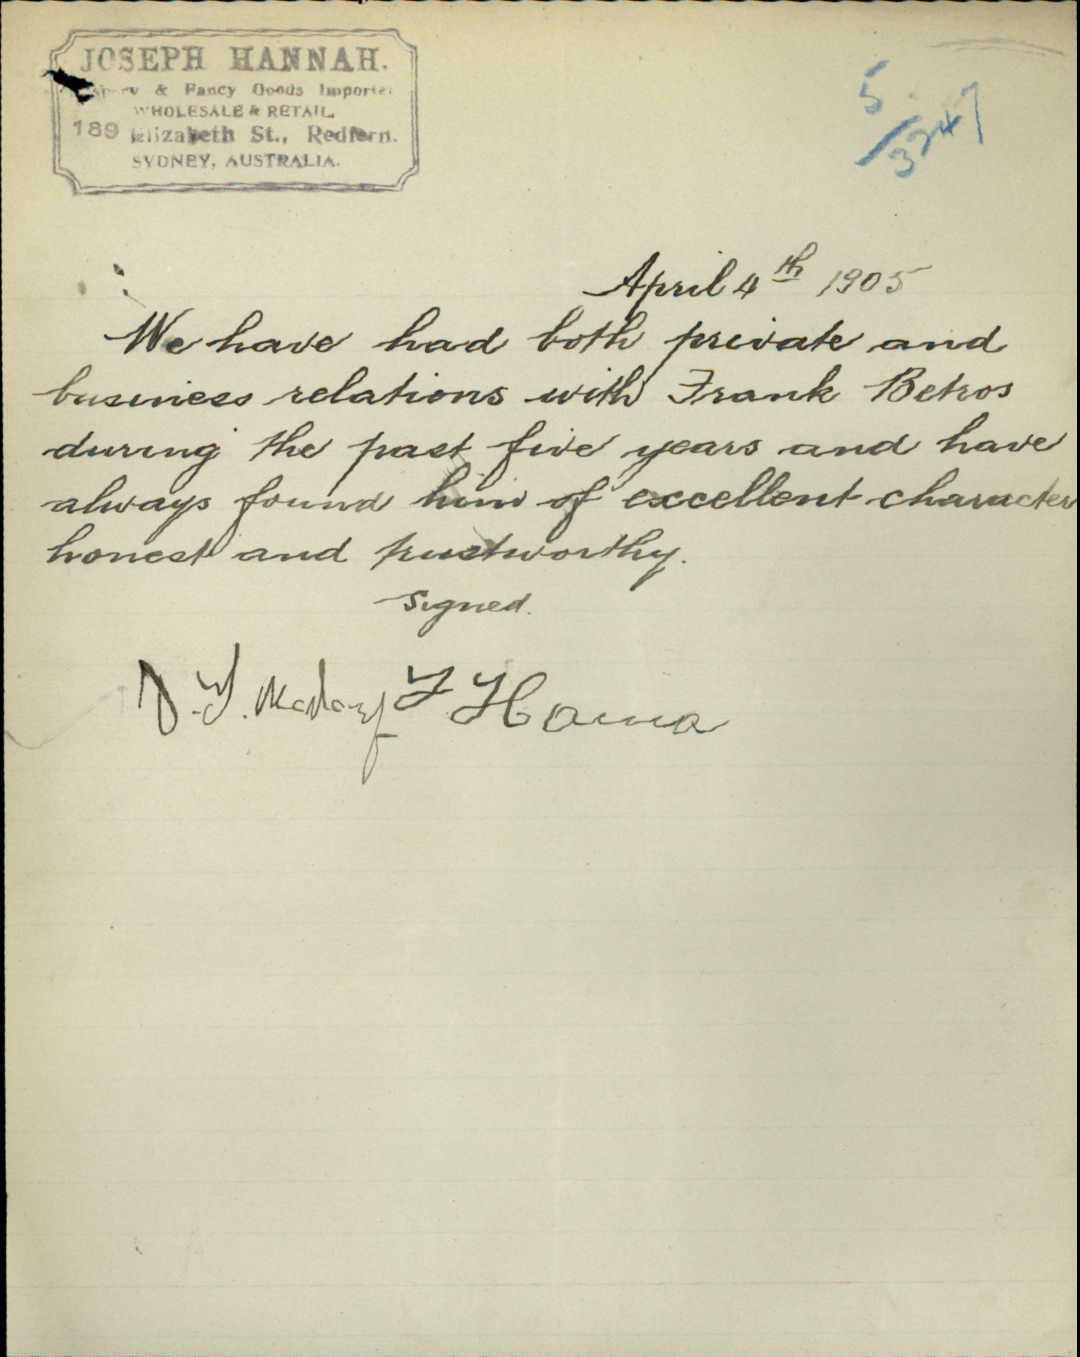 JOSEPH HANNAH.
& Fancy Goods Importer
WHOLESALE & RETAIL,
189 Elizabeth St., Redfern.
SYDNEY, AUSTRALIA.
5/3247
April 4th 1905
We have had both private and
business relations with Frank Betros
during the past five years and have
always found him of excellent character
honest and trustworthy.
Signed.